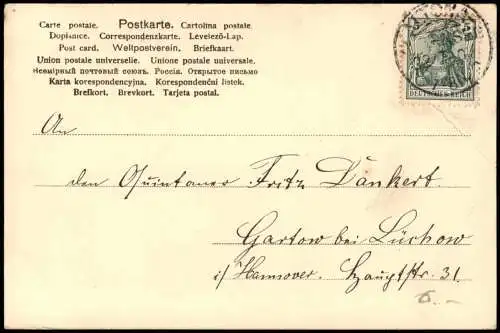 Carte postale. Postkarte. Cartolina postale.
Dopisnice. Correspondenzkarte. Levelező-Lap.
Post card. Weltpostverein. Briefkaart.
Union postale universelle. Unione postale universale.
Всемірный почтовый союзъ. Россія. Открытое письмо
Karta korespondencyjna. Korespondenční lístek.
Brefkort. Brevkort. Tarjeta postal.
DEUTSCHES REICH
An
den Quintaner Fritz Dankert.
Gartow bei Lüchow
i/ Hannover. Hauptstr. 31.
6.-